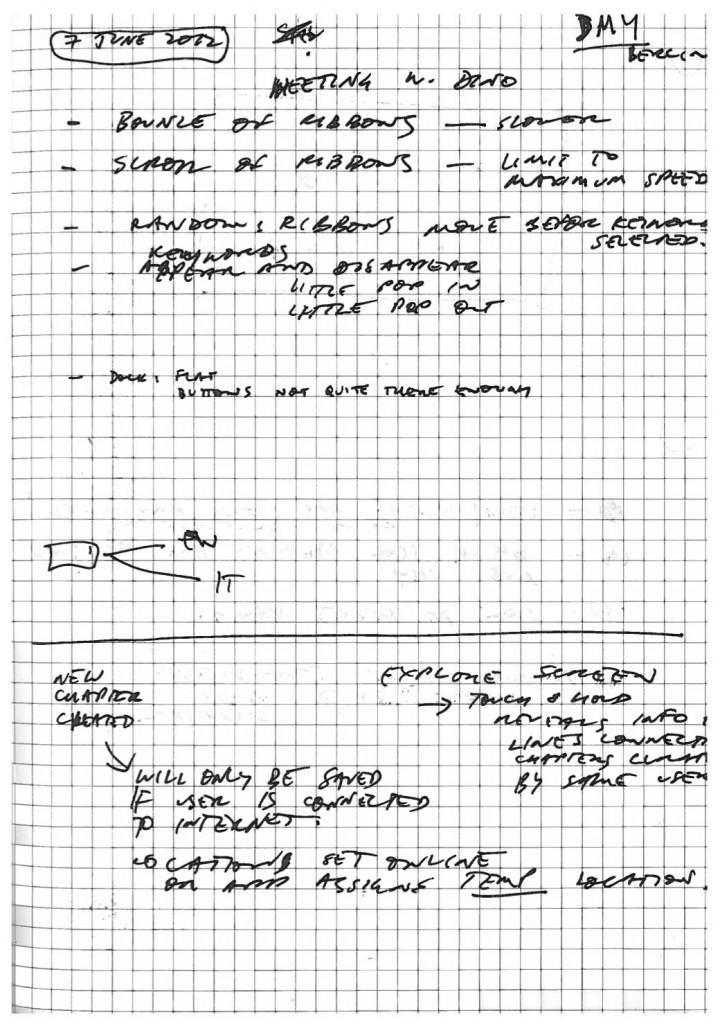 7 JUNE 2012
DMY
BERLIN
MEETING W. DINO
- BOUNCE OF RIBBONS — SLOWER
- SCROLL OF RIBBONS — LIMIT TO
MAXIMUM SPEED
- RANDOM: RIBBONS MOVE BEFORE KEYWORDS
SELECTED.
KEYWORDS
- APPEAR AND DISAPPEAR
LITTLE POP IN
LITTLE POP OUT
- DOCK: FLAT
BUTTONS NOT QUITE THERE ENOUGH
EN
IT
NEW
CHAPTER
CREATED
WILL ONLY BE SAVED
IF USER IS CONNECTED
TO INTERNET.
LOCATIONS SET ONLINE
OR APP ASSIGNS TEMP LOCATION.
EXPLORE SCREEN
→ TOUCH & HOLD
REVEALS INFO:
LINES CONNECT
CHAPTERS CREAT
BY SAME USER